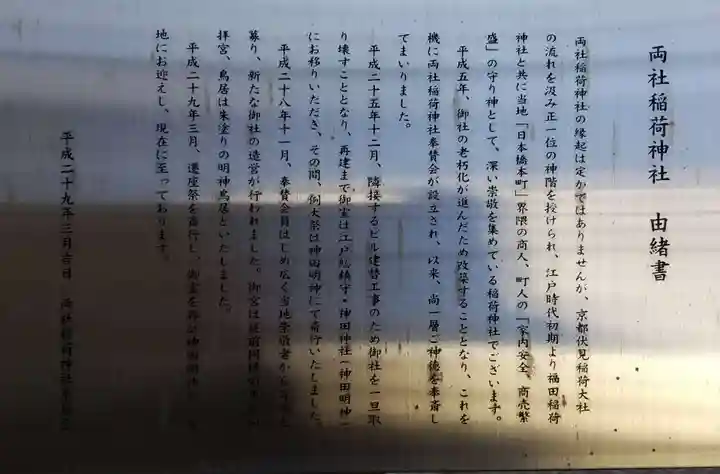 両社稲荷神社 由緒書
両社稲荷神社の縁起は定かではありませんが、京都伏見稲荷大社
の流れを汲み正一位の神階を授けられ、江戸時代初期より福田稲荷
神社と共に当地「日本橋本町」界隈の商人、町人の「家内安全、商売繁
盛」の守り神として、深い崇敬を集めている稲荷神社でございます。
平成五年、御社の老朽化が進んだため改築することとなり、これを
機に両社稲荷神社奉賛会が設立され、以来、尚一層ご神徳を奉斎し
てまいりました。
平成二十五年十二月、隣接するビル建替工事のため御社を一旦取
り壊すこととなり、再建まで御霊は江戸総鎮守・神田神社(神田明神)
にお移りいただき、その間、例大祭は神田明神にて斎行いたしました。
平成二十八年十一月、奉賛会員はじめ広く当地崇敬者から
募り、新たな御社の造営が行われました。御宮は従前同様
拝宮、鳥居は朱塗りの明神鳥居といたしました。
平成二十九年三月、遷座祭を斎行し、御霊を 神田明神
地にお迎えし、現在に至っております。
平成二十九年三月吉日 両社稲荷神社奉賛会